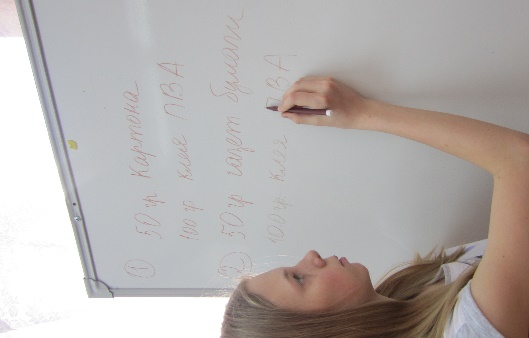 ① 50 гр картона
100 гр клея ПВА
② 50 гр газет бумаги
100 гр клея ПВА